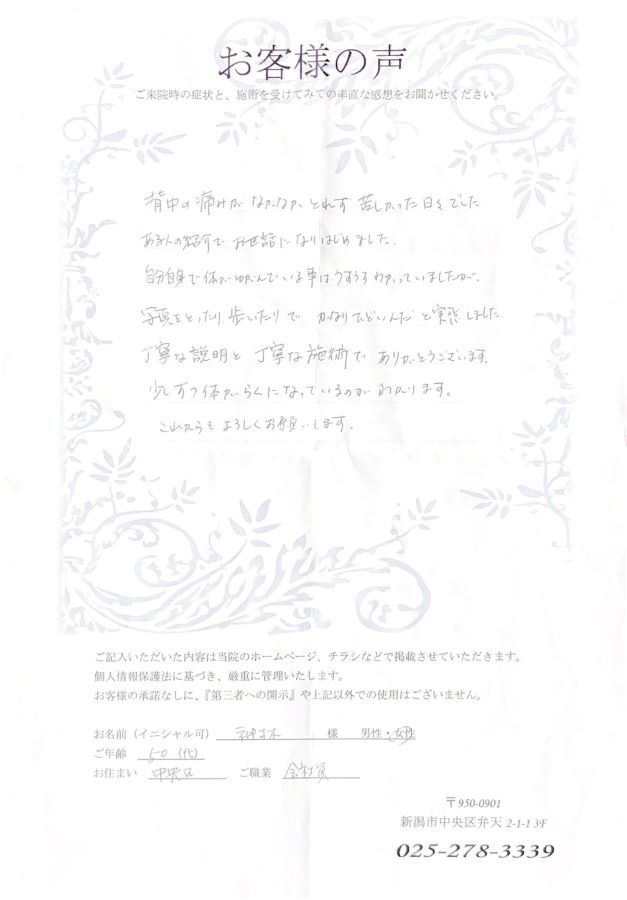 お客様の声
ご来院時の症状と、施術を受けてみての率直な感想をお聞かせください。
背中の痛みがなかなかとれず苦しかった日々でした
ある人の紹介でお世話になりはじめました。
自分自身で体がゆがんでいる事はうすうすわかっていましたが、
写真をとったり、歩いたりでかなりひどいんだと実感しました。
丁寧な説明と丁寧な施術でありがとうございます。
少しずつ体がらくになっているのがわかります。
これからもよろしくお願いします。
ご記入いただいた内容は当院のホームページ、チラシなどで掲載させていただきます。
個人情報保護法に基づき、厳重に管理いたします。
お客様の承諾なしに、『第三者への開示』や上記以外での使用はございません。
お名前（イニシャル可） 様 男性・女性
ご年齢 50（代）
お住まい 中央区 ご職業 会社員
〒950-0901
新潟市中央区弁天 2-1-1 3F
025-278-3339